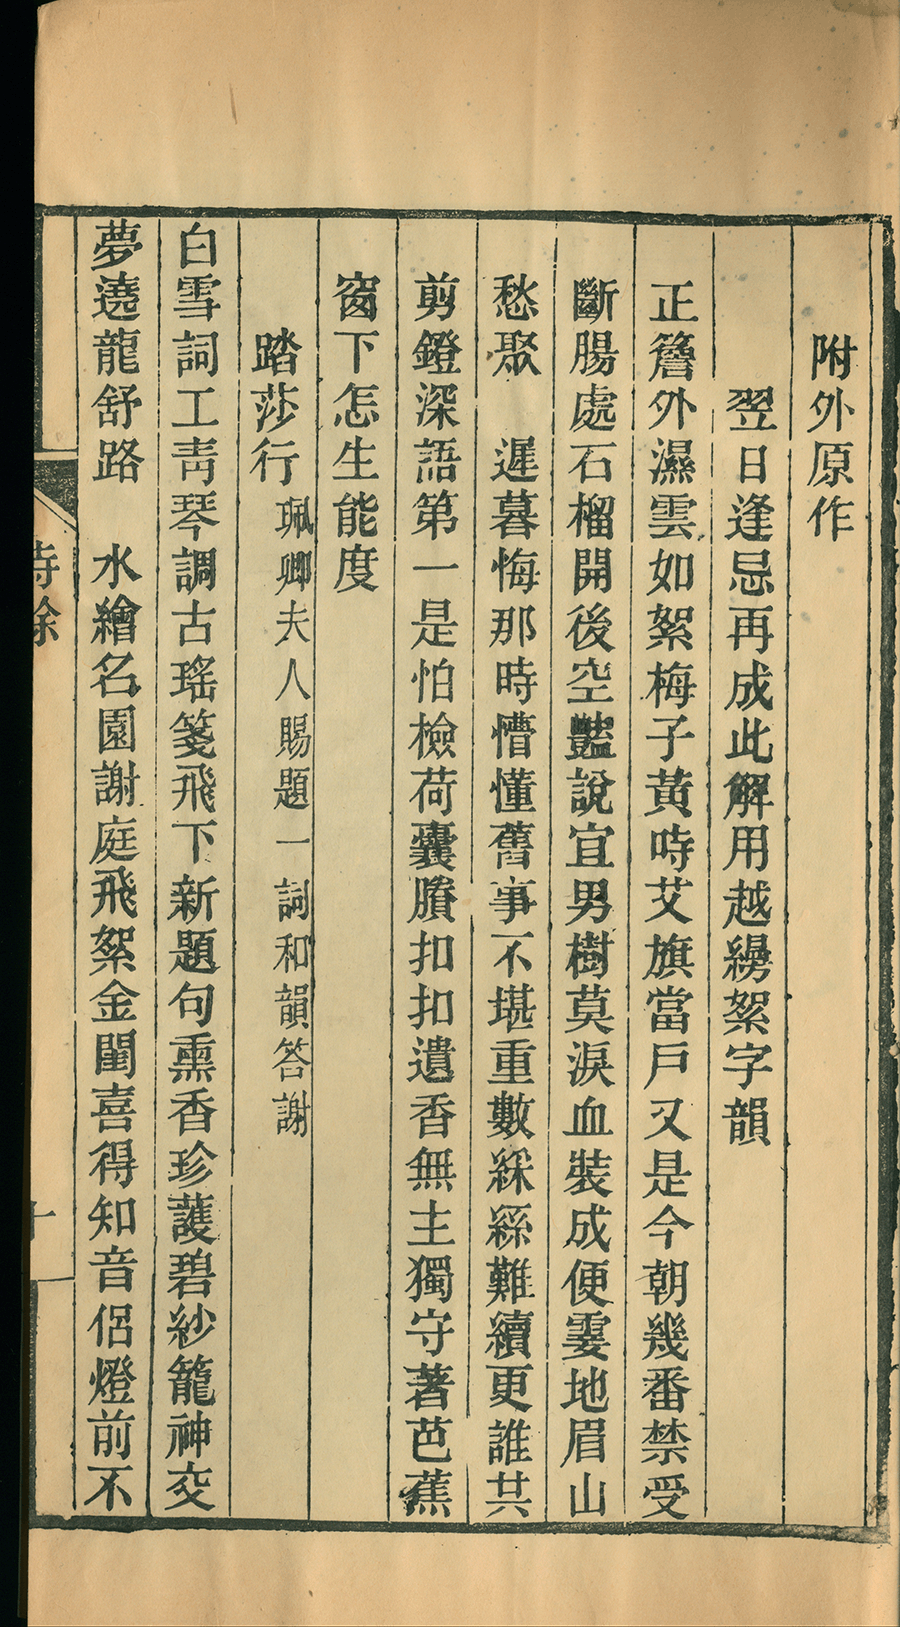 附外原作
翌日逢忌再成此解用越縵絮字韻
正簷外濕雲如絮梅子黃時艾旗當戶又是今朝幾番禁受
斷腸處石榴開後空豔說宜男樹莫淚血裝成便霎地眉山
愁聚　遲暮悔那時懵懂舊事不堪重數綵絲難續更誰共
剪鐙深語第一是怕檢荷囊賸扣扣遺香無主獨守著芭蕉
窗下怎生能度
踏莎行 珮卿夫人賜題一詞和韻答謝
白雪詞工靑琴調古瑤箋飛下新題句熏香珍護碧紗籠神交
夢遶龍舒路　水繪名園謝庭飛絮金閨喜得知音侶燈前不
詩餘
十